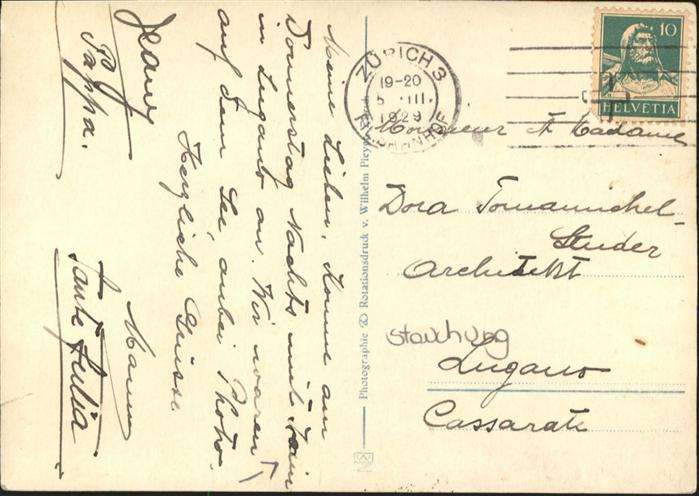 Meine Lieben, Komme am
Donnerstag Nachts mit Zain
in Lugano an. Wir waren
auf dem See, anbei Photo.
Herzliche Grüsse
Mama
Tante Julia
Jeany
Pappa.
Photographie & Rotationsdruck v. Wilhelm Pleyer
ZÜRICH 3
19-20
5. III.
1929
10
HELVETIA
Monsieur & Madame
Dora Tomamichel-
Studer
Architekt
stauchung
Lugano
Cassarate